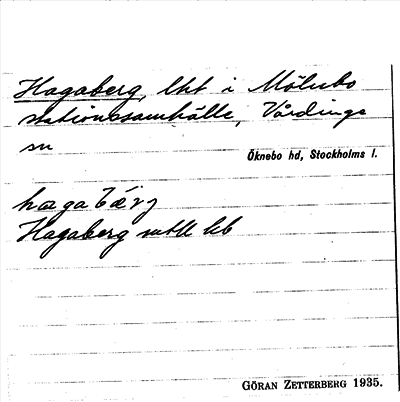 Hagaberg, lht i Mölnbo
stationssamhälle, Vårdinge
sn
Öknebo hd, Stockholms l.
hagabærj
Hagaberg mtll kb
GÖRAN ZETTERBERG 1935.